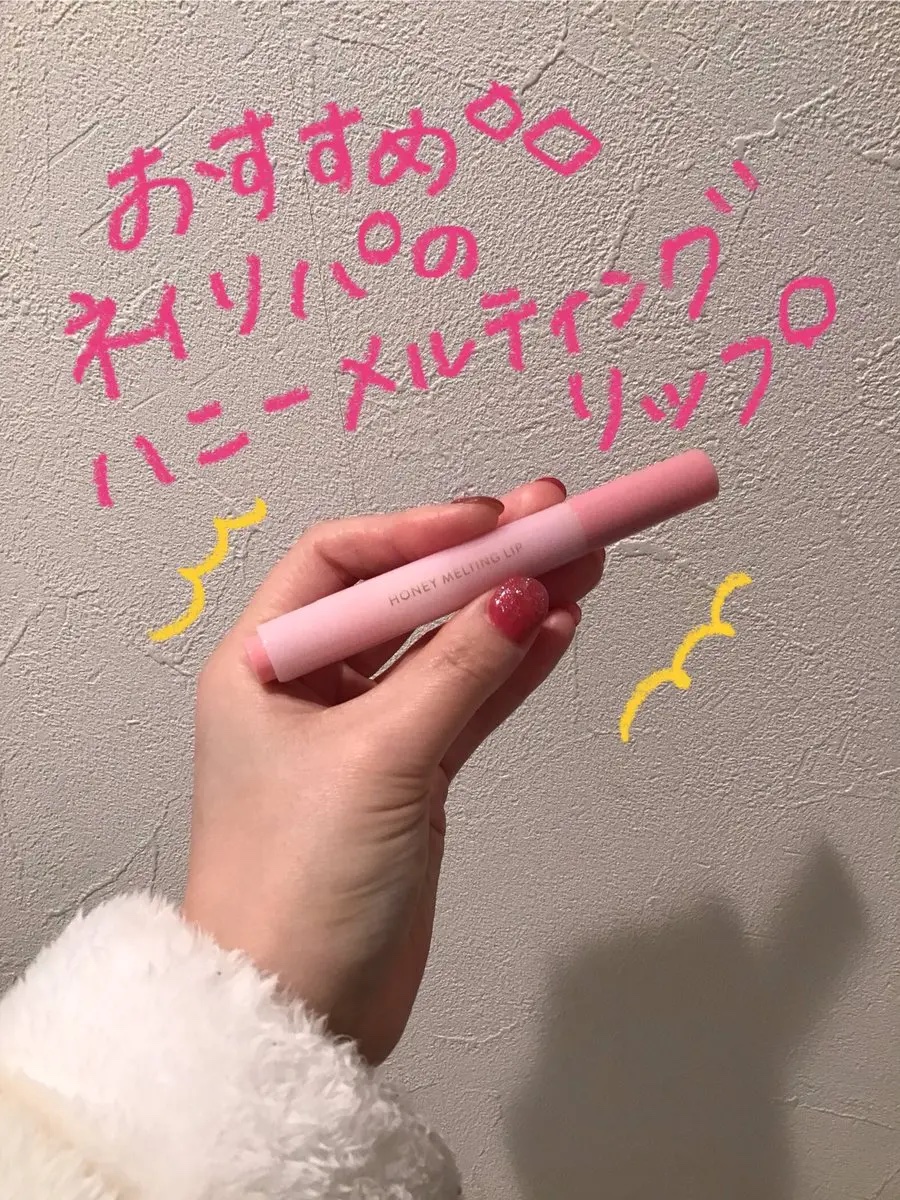 おすすめ°
ネイリパの
ハニーメルティング
リップ
HONEY MELTING LIP